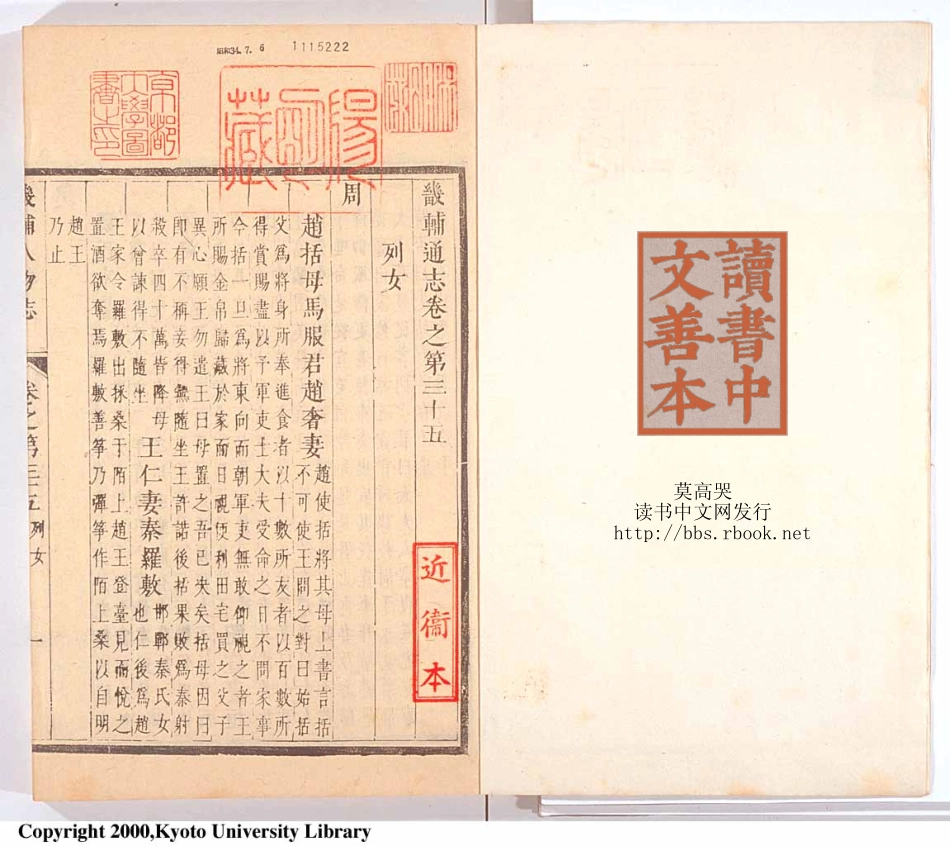 昭和34.7.6
1115222
京都
大學圖
書之印
陽明
藏
畿輔通志卷之第三十五
列女
周
趙括母馬服君趙奢妻 趙使括將其母上書言括
不可使王問之對曰始括
父爲將身所奉進食者以十數所友者以百數所
得賞賜盡以予軍吏士大夫受命之日不問家事
今括一旦爲將東向而朝軍吏無敢仰視之者王
所賜金帛歸藏於家而日視便利田宅買之父子
異心願王勿遣王曰母置之吾已决矣括母因曰
即有不稱妾得無隨坐王許諾後括果敗爲秦射
殺卒四十萬皆降母
以曾諫得不隨坐 王仁妻秦羅敷 邯鄲秦氏女
也仁後爲趙
王家令羅敷出採桑于陌上趙王登臺見而悅之
置酒欲奪焉羅敷善筝乃彈筝作陌上桑以自明
趙王
乃止
畿輔人物志
卷之第三十五 列女
一
近衞本
讀書中
文善本
莫高哭
读书中文网发行
http://bbs.rbook.net
Copyright 2000,Kyoto University Library